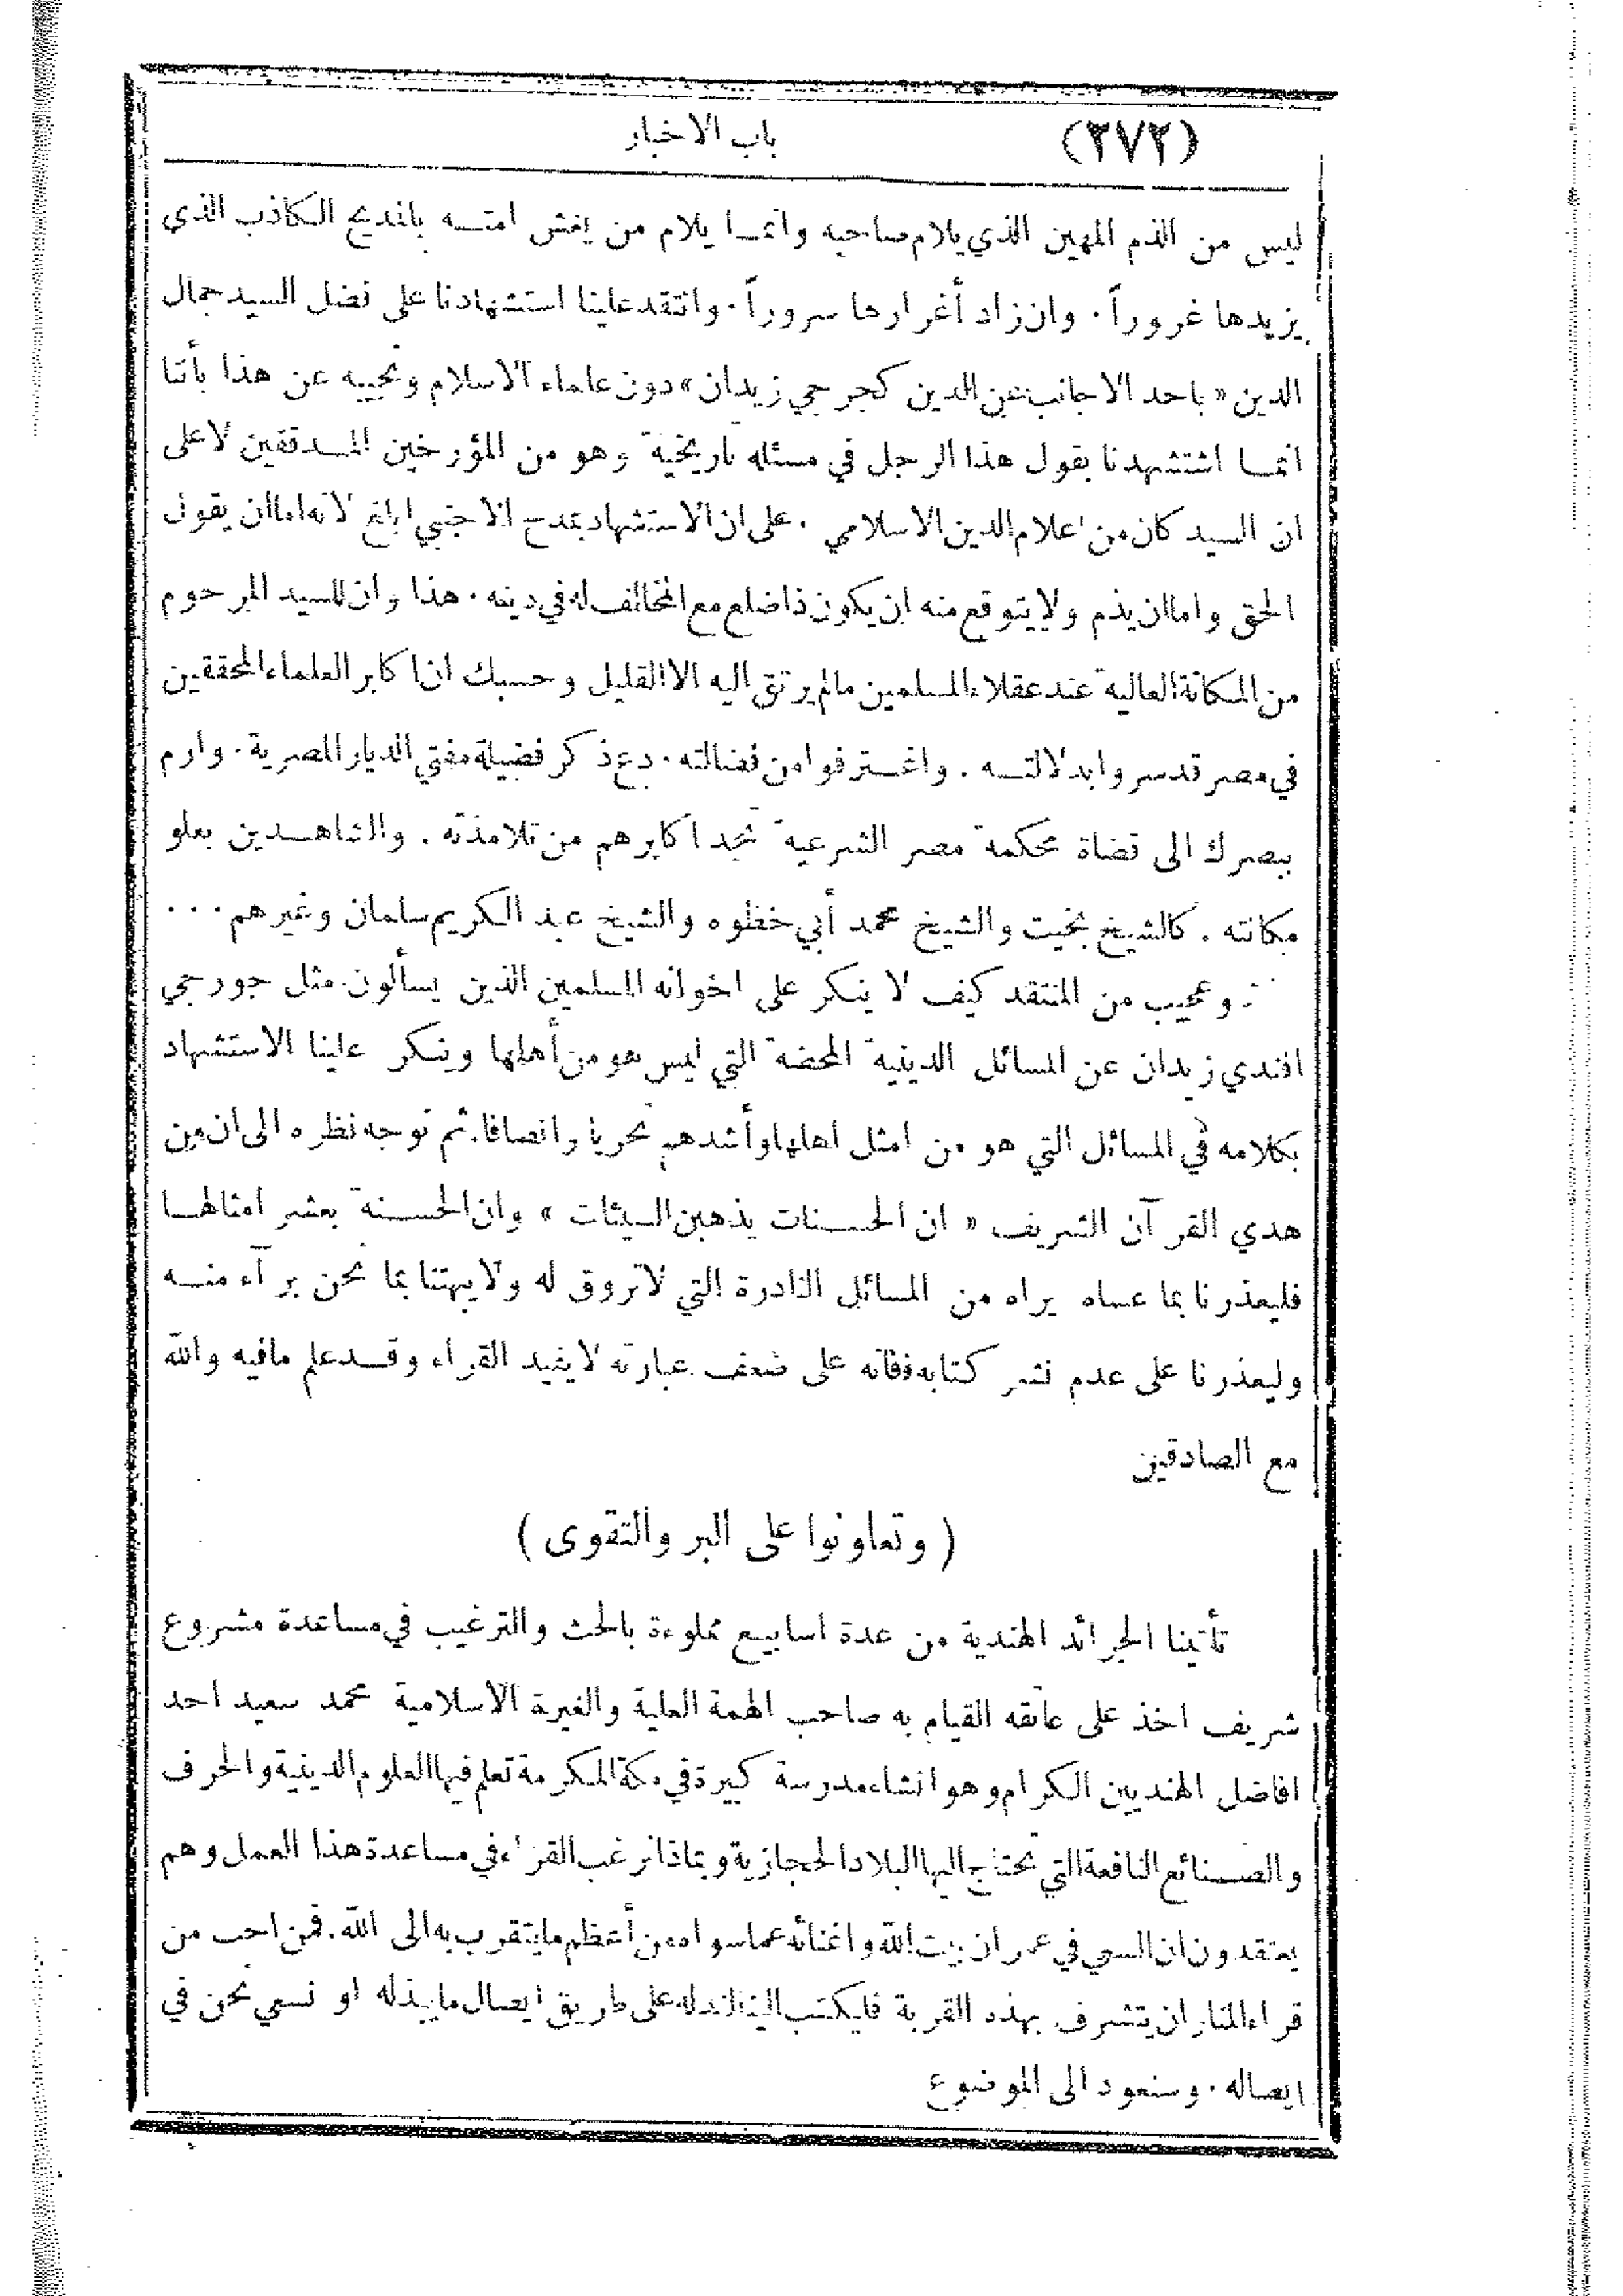 (٢٧٢) باب الاخبار
ليس من الذم المهين الذي يلام صاحبه وانمـا يلام من يغش امتـه بالمديح الكاذب الذي
يزيدها غروراً . وان زاد أغرارها سروراً . وانتقد علينا استشهادنا على فضل السيد جمال
الدين « باحد الاجانب عن الدين كجرجي زيدان » دون علماء الاسلام ونجيبه عن هذا بأننا
انمـا اشتشهدنا بقول هذا الرجل في مسئلة تاريخية وهو من المؤرخين المـدققين لا على
ان السيد كان من اعلام الدين الاسلامي . على ان الاستشهاد بمدح الاجنبي ابلغ لانه اما ان يقول
الحق واما ان يذم ولا يتوقع منه ان يكون ذا ضلع مع المخالف له في دينه . هذا وان للسيد المرحوم
من المكانة العالية عند عقلاء المسلمين مالم يرتق اليه الا القليل وحسبك ان اكابر العلماء المحققين
في مصر قد سروا بدلالتـه . واغـترفوا من فضالته . دع ذكر فضيلة مفتي الديار المصرية . وارم
ببصرك الى قضاة محكمة مصر الشرعية تجد اكابرهم من تلامذته . والشاهـدين بعلو
مكانته . كالشيخ بخيت والشيخ محمد أبي خطوه والشيخ عبد الكريم سلمان وغيرهم ...
وعجيب من المنتقد كيف لا ينكر على اخوانه المسلمين الذين يسألون مثل جورجي
افندي زيدان عن المسائل الدينية المحضة التي ليس هو من أهلها وينـكر علينا الاستشهاد
بكلامه في المسائل التي هو من امثل اهلها وأشدهم تحريا وانصافا . ثم نوجه نظره الى ان من
هدي القرآن الشريف « ان الحسـنات يذهبن السيئات » وان الحسـنة بعشر امثالهـا
فليعذرنا بما عساه يراه من المسائل النادرة التي لاتروق له ولا يبهتنا بما نحن برآء منـه
وليعذرنا على عدم نشر كتابه فانه على ضعف عبارته لا يفيد القراء وقـد علم مافيه والله
مع الصادقين
( وتعاونوا على البر والتقوى )
تأتينا الجرائد الهندية من عدة اسابيع مملوءة بالحث والترغيب في مساعدة مشروع
شريف اخذ على عاتقه القيام به صاحب الهمة العلية والغيرة الاسلامية محمد سعيد احد
افاضل الهنديين الكرام وهو انشاء مدرسة كبيرة في مكة المكرمة تعلم فيها العلوم الدينية والحرف
والصـنائع النافعة التي تحتاج اليها البلاد الحجازية وبماذا نرغب القراء في مساعدة هذا العمل وهم
يعتقدون ان السعي في عمران بيت الله واغنائه عما سواه من أعظم ما يتقرب به الى الله . فمن احب من
قراء المنار ان يتشرف بهذه القربة فليكتب الينا لندله على طريق ايصال مايبذله او نسعي نحن في
ايصاله . وسنعود الى الموضوع